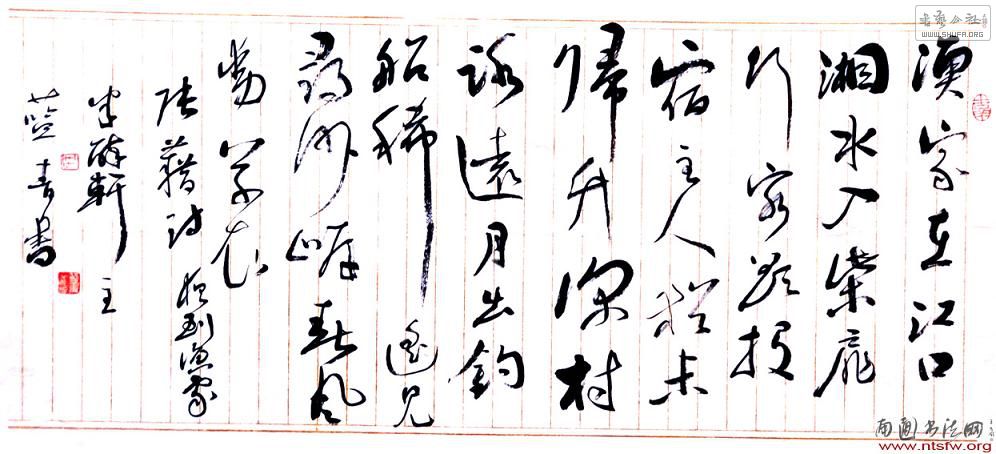 漁家在江口
湘水入柴扉
行客欲投
宿主人猶未
歸竹深村
路遠月出釣
船稀遙見
尋沙岸春風
動草衣
張籍詩 夜到漁家
半醉軒主
藍青書
书艺公社
WWW.SHUFA.ORG
南通书法网
www.ntsfw.org